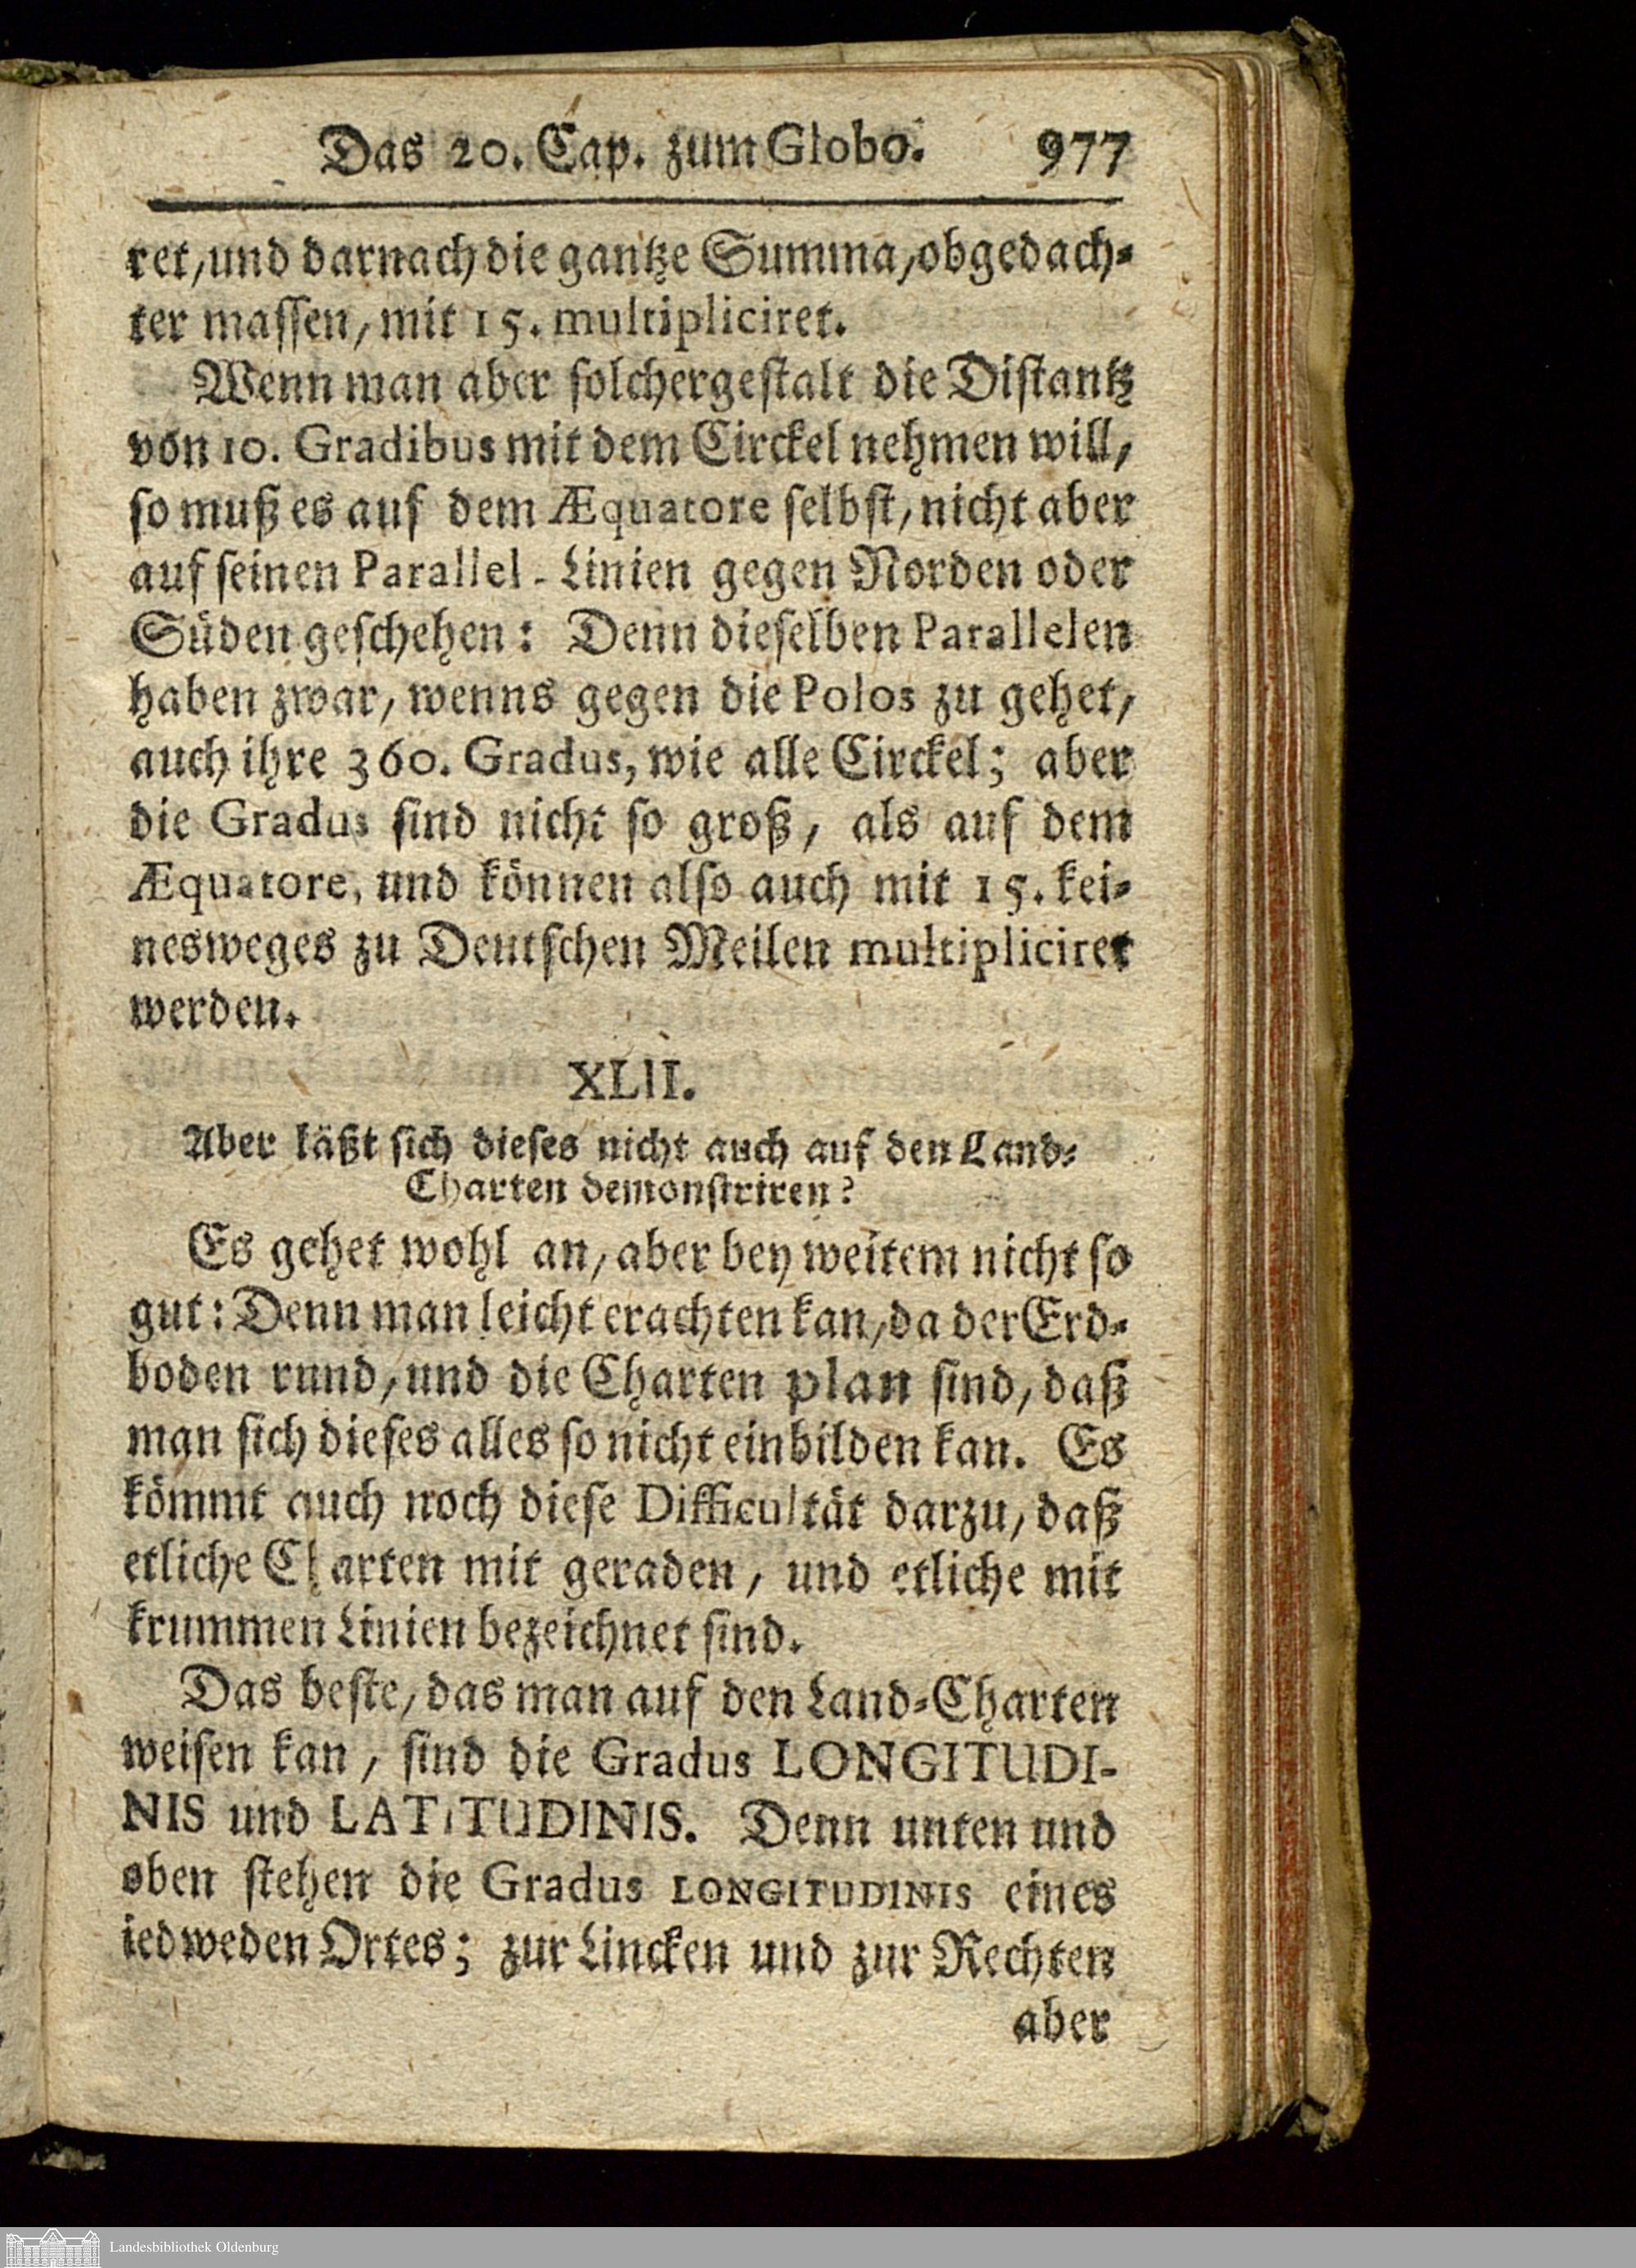 Das 20. Cap. zum Globo. 977
ret, und darnach die gantze Summa, obgedach-
ter massen, mit 15. multipliciret.
Wenn man aber solchergestalt die Distantz
von 10. Gradibus mit dem Circkel nehmen will,
so muß es auf dem Æquatore selbst, nicht aber
auf seinen Parallel-Linien gegen Norden oder
Süden geschehen: Denn dieselben Parallelen
haben zwar, wenns gegen die Polos zu gehet,
auch ihre 360. Gradus, wie alle Circkel; aber
die Gradus sind nicht so groß, als auf dem
Æquatore, und können also auch mit 15. kei-
nesweges zu Deutschen Meilen multipliciret
werden.
XLII.
Aber läßt sich dieses nicht auch auf den Land-
Charten demonstriren?
Es gehet wohl an, aber bey weitem nicht so
gut: Denn man leicht erachten kan, da der Erd-
boden rund, und die Charten plan sind, daß
man sich dieses alles so nicht einbilden kan. Es
kömmt auch noch diese Difficultät darzu, daß
etliche Charten mit geraden, und etliche mit
krummen Linien bezeichnet sind.
Das beste, das man auf den Land-Charten
weisen kan, sind die Gradus LONGITUDI-
NIS und LATITUDINIS. Denn unten und
oben stehen die Gradus LONGITUDINIS eines
iedweden Ortes; zur Lincken und zur Rechten
aber
Landesbibliothek Oldenburg